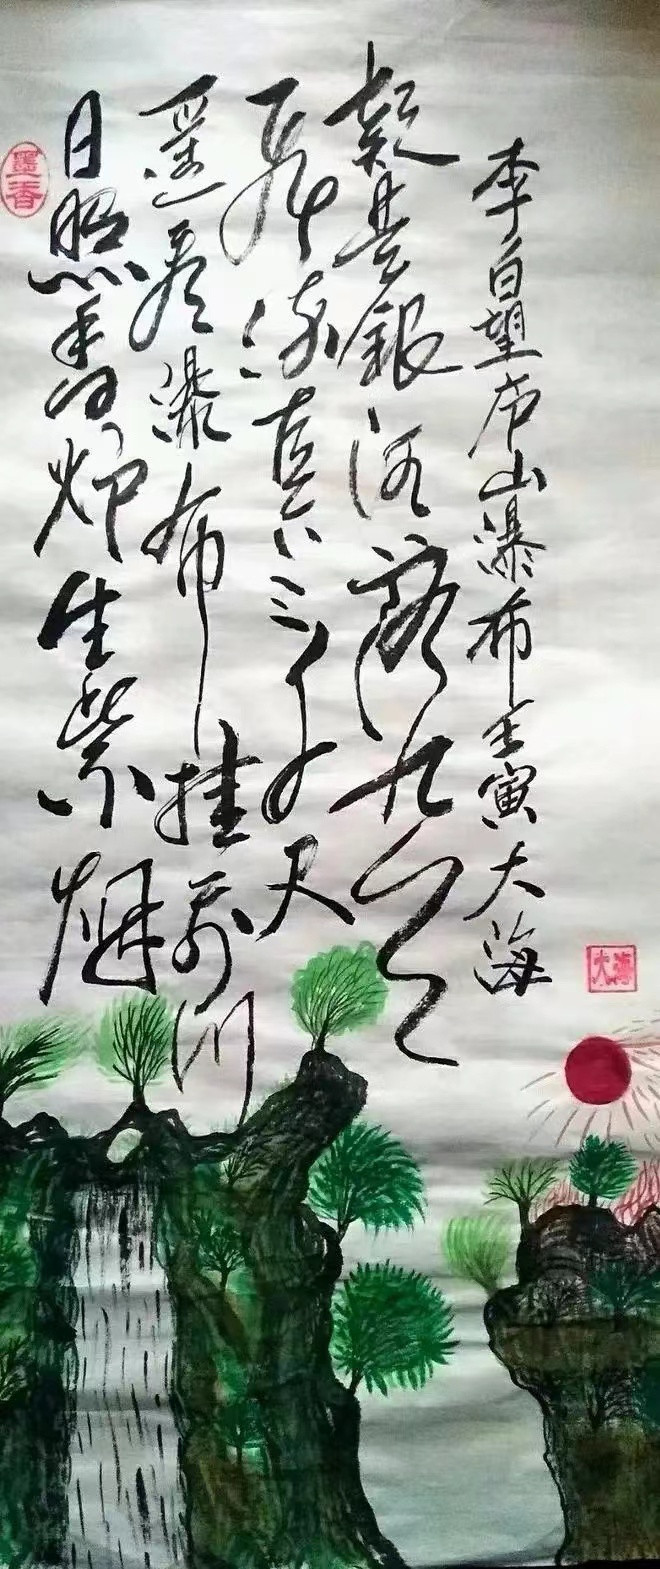 墨香
日照香炉生紫烟
遥看瀑布挂前川
飞流直下三千尺
疑是銀河落九天
李白望庐山瀑布壬寅大海
大海